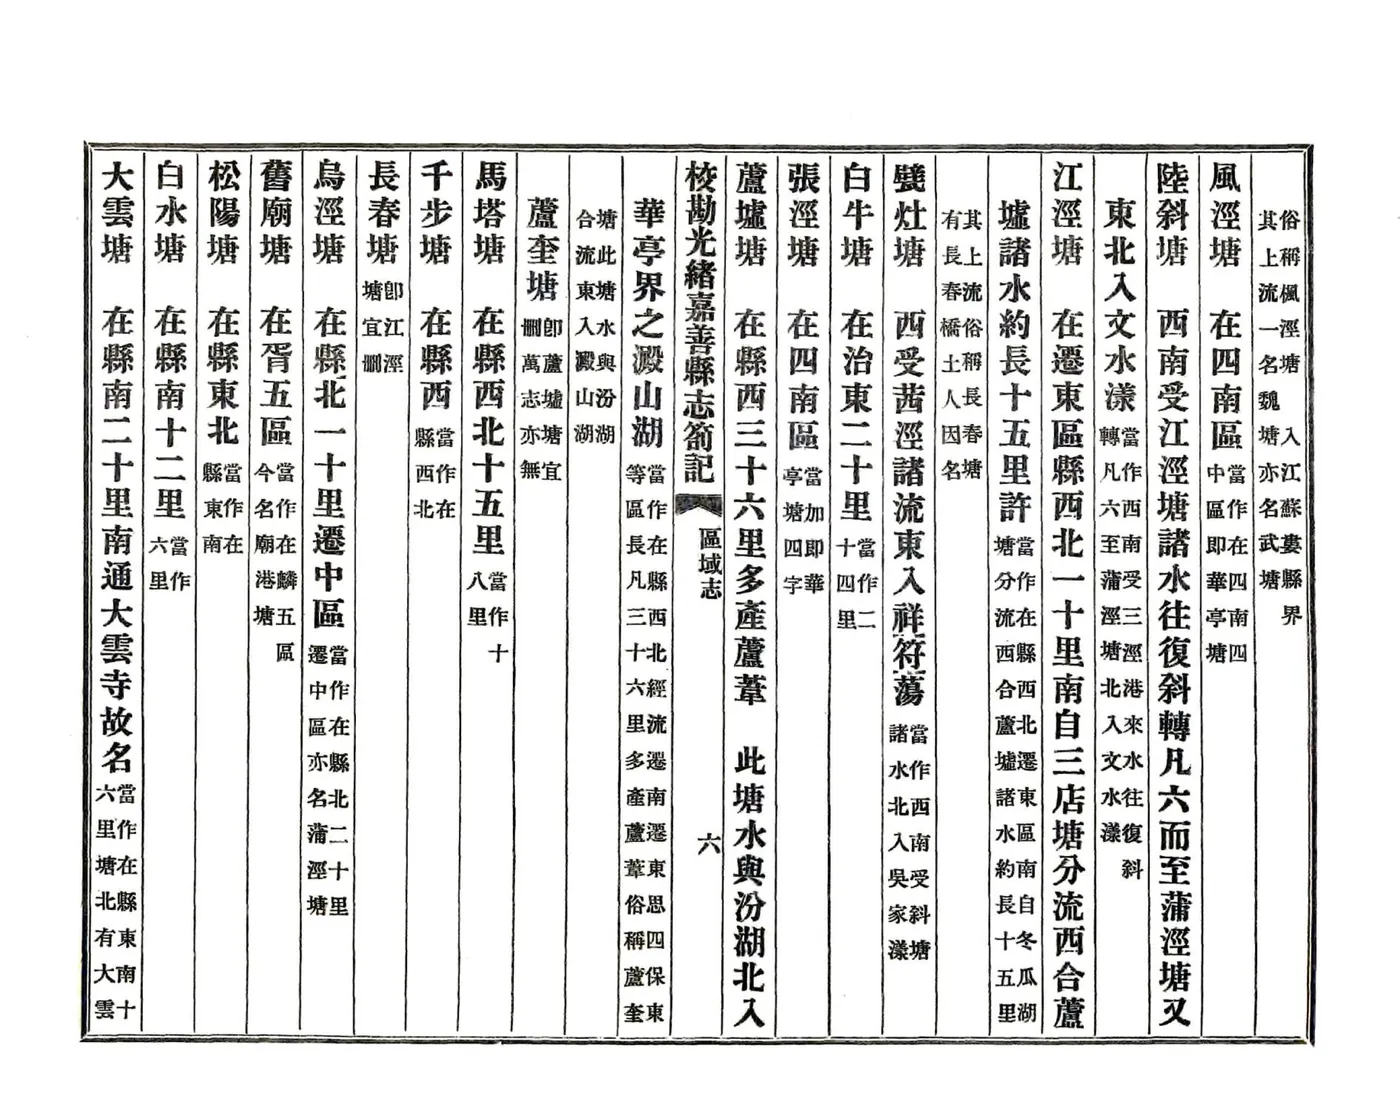 俗稱楓涇塘入江蘇婁縣界
其上流一名魏塘亦名武塘
風涇塘　在四南區當作在四南四中區即華亭塘
陸斜塘　西南受江涇塘諸水往復斜轉凡六而至蒲涇塘又
東北入文水漾當作西南受三涇港來水往復斜轉凡六至蒲涇塘北入文水漾
江涇塘　在遷東區縣西北一十里南自三店塘分流西合蘆
墟諸水約長十五里許當作在縣西北遷東區南自冬瓜湖塘分流西合蘆墟諸水約長十五里
其上流俗稱長春塘
有長春橋土人因名
甓灶塘　西受茜涇諸流東入祥符蕩當作西南受斜塘諸水北入吳家漾
白牛塘　在治東二十里當作二十四里
張涇塘　在四南區當加即華亭塘四字
蘆墟塘　在縣西三十六里多產蘆葦　此塘水與汾湖北入
校勘光緒嘉善縣志箚記　區域志　六
華亭界之澱山湖當作在縣西北經流遷南遷東思四保東等區長凡三十六里多產蘆葦俗稱蘆奎
塘此塘水與汾湖
合流東入澱山湖
蘆奎塘即蘆墟塘宜刪萬志亦無
馬塔塘　在縣西北十五里當作十八里
千步塘　在縣西當作在縣西北
長春塘即江涇塘宜刪
烏涇塘　在縣北一十里遷中區當作在縣北二十里遷中區亦名蒲涇塘
舊廟塘　在胥五區當作在麟五區今名廟港塘
松陽塘　在縣東北當作在縣東南
白水塘　在縣南十二里當作六里
大雲塘　在縣南二十里南通大雲寺故名當作在縣東南十六里塘北有大雲